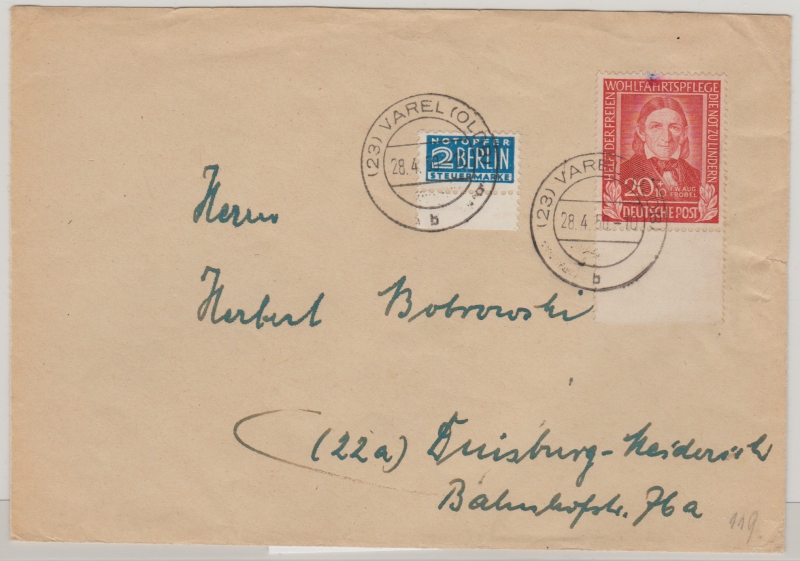 (23) VAREL (OLD
28.4.50
b
NOTOPFER
2 BERLIN
STEUERMARKE
(23) VAREL
28.4.50-10
b
HELFT DER FREIEN
WOHLFAHRTSPFLEGE
DIE NOT ZU LINDERN
20+10
FRW. AUG.
FRÖBEL
DEUTSCHE POST
Herrn
Herbert Bobrowski
(22a) Duisburg-Meiderich
Bahnhofstr. 76a
119.